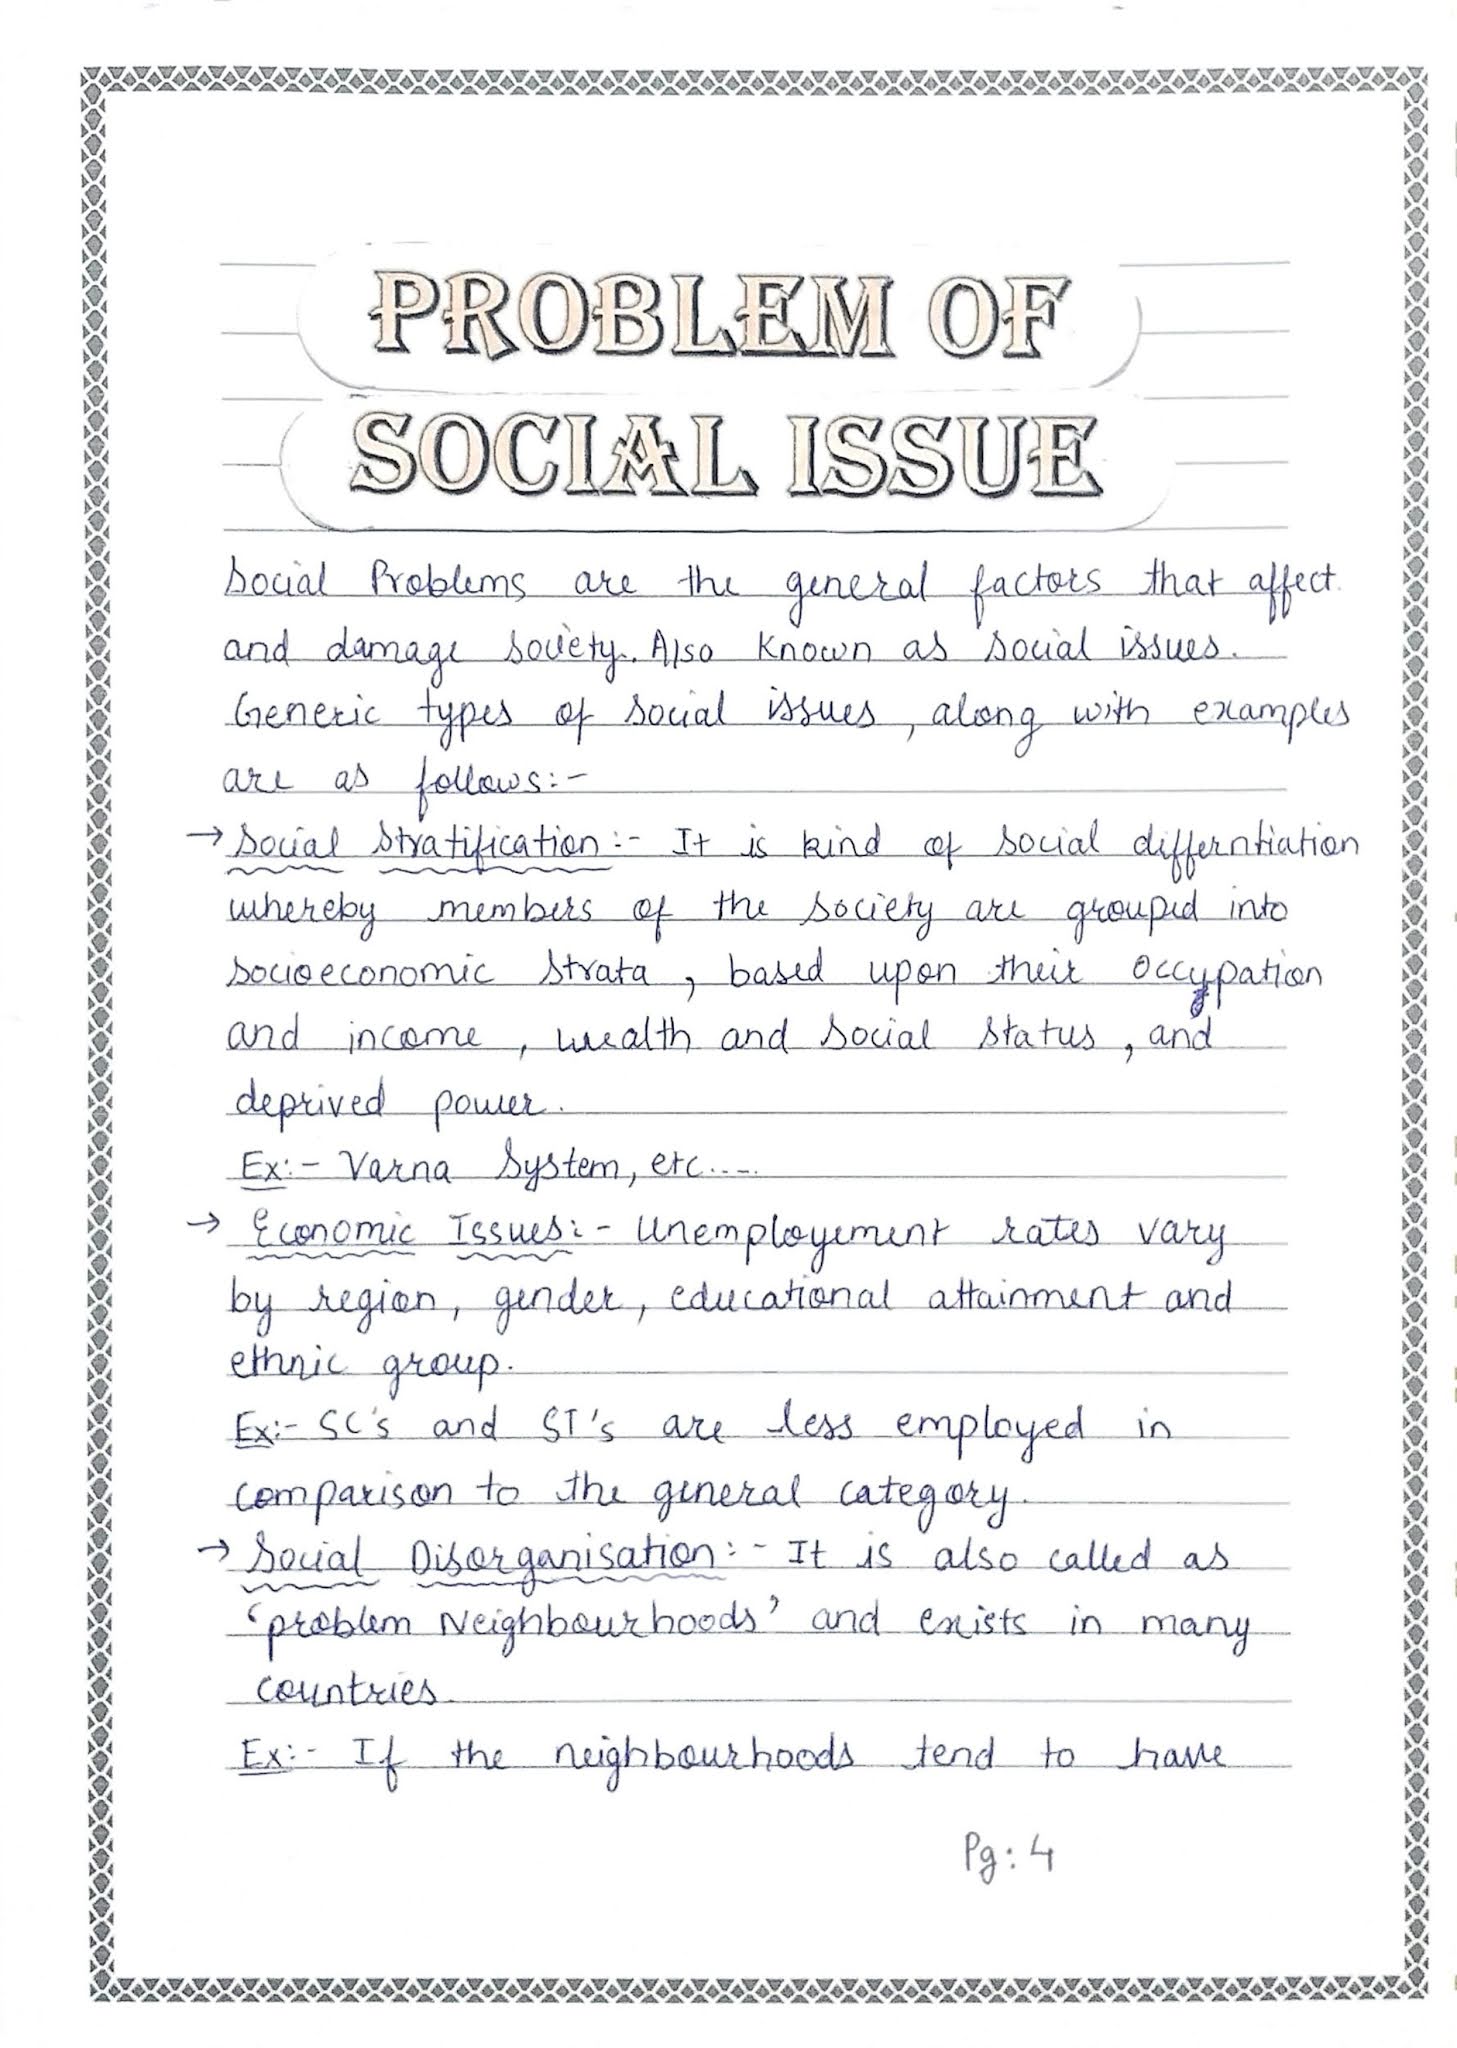 PROBLEM OF
SOCIAL ISSUE
Social Problems are the general factors that affect
and damage society. Also Known as social issues.
Generic types of social issues, along with examples
are as follows:-
→ Social Stratification:- It is kind of social differntiation
whereby members of the society are grouped into
socioeconomic strata, based upon their occupation
and income, wealth and social status, and
deprived power.
Ex:- Varna System, etc.....
→ Economic Issues:- Unemployement rates vary
by region, gender, educational attainment and
ethnic group.
Ex:- SC's and ST's are less employed in
comparison to the general category.
→ Social Disorganisation:- It is also called as
'problem Neighbourhoods' and exists in many
countries
Ex:- If the neighbourhoods tend to have
Pg: 4